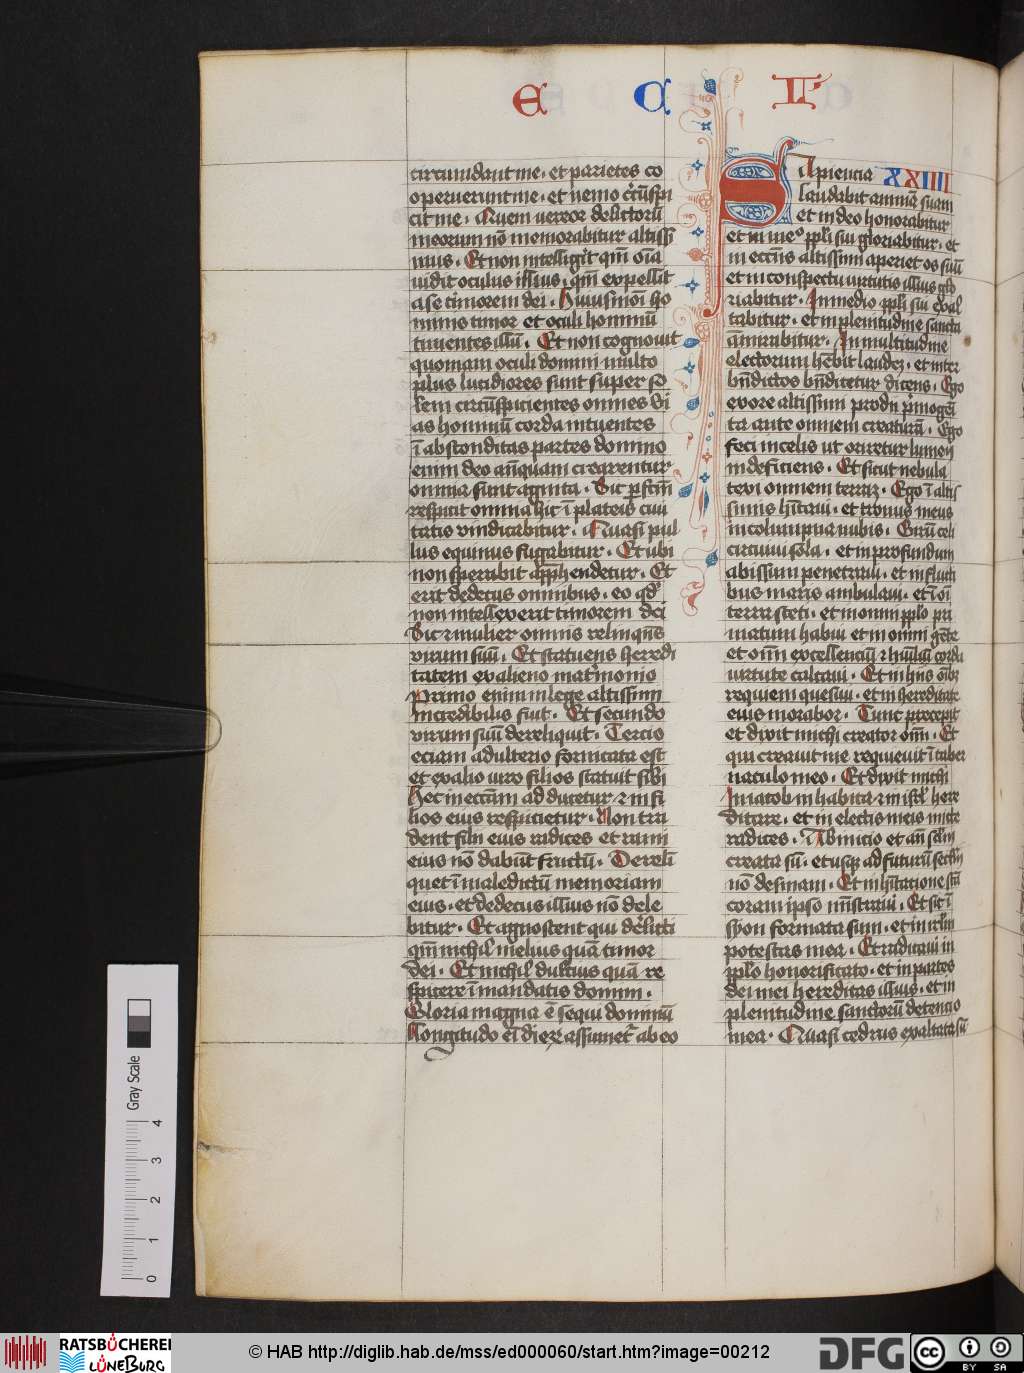 E C LI
circumdant me · et parietes co
operuerunt me · et nemo circuspi
cit me · Quem uereor delictorū
meorum nō memorabitur altissi
mus · Et non intelligit qm̄ oīa
uidit oculus illius · qm̄ expellit
a se timorem dei · Huiusmoī ho
minis timor et oculi hominū
timentes illū · Et non cognouit
quoniam oculi domini multo
plus lucidiores sunt super so
lem circūspicientes omnes vi
as hominū corda intuentes
ī absconditas partes domino
enim deo an̄quam crearentur
omnia sunt agnita · Sic post fc̄m
respicit omnia hic ī plateis ciui
tatis vindicabitur · Quasi pul
lus equinus fugabitur · Et ubi
non sperabit app̄hendetur · Et
erit dedecus omnibus · eo qd̄
non intellexerit timorem dei
Sic ⁊ mulier omnis relinquēs
virum suū · Et statuens heredi
tatem ex alieno matrimonio
Primo enim in lege altissimi
incredibilis fuit · Et secundo
virum suū dereliquit · Tercio
eciam adulterio fornicata est
et ex alio uiro filios statuit sibi
Hec in ecciam adducetur ⁊ in fi
lios eius respicietur · Non tra
dent filii eius radices et rami
eius nō dabūt fructū · Dereli
quet ī maledictū memoriam
eius · et dedecus illius nō dele
bitur · Et agnoscent qui derelicti
qm̄ nichil melius quā timor
dei · Et nichil dulcius quā re
spicere ī mandatis domini ·
Gloria magna ē sequi dominū
Longitudo eī dierꝝ assumet' ab eo
Sapiencia XXIIII
laudabit animā suam
et in deo honorabitur
et in meo ppli sui gloriabitur · et
in eccīis altissimi aperiet os suū
et in conspectu uirtutis illius glo
riabitur · In medio ppli sui exal
tabitur · et in plenitudine sancta
āmirabitur · In multitudine
electorum hēbit laudeʒ · et inter
bn̄dictos bn̄dicetur dicens · Ego
ex ore altissimi prodii primogeni
ta ante omnem creaturā · Ego
feci in celis ut oriretur lumen
indeficiens · Et sicut nebula
texi omnem terraʒ · Ego ī altis
simis hītaui · et tronus meus
in columpna nubis · Girū celi
circuiui sola · et in profundum
abissum penetraui · et in flucti
bus maris ambulaui · et ī oī
terra steti · et in omni pplo pri
matum habui et in omni gēte
et om̄ excellenciū ⁊ humiliū corda
uirtute calcaui · Et in hijs oībʒ
requiem quesiui · et in hereditate
eius morabor · Tunc precepit
et dixit michi creator om̄ · Et
qui creauit me requieuit ī taber
naculo meo · Et dixit michi
In iacob inhabita ⁊ in isrl' here
ditare · et in electis meis mitte
radices · Ab inicio et an̄ sclā
creata sū · et usqʒ ad futurū sclm̄
nō desinam · Et in hītacione scā
coram ipso mīstraui · Et sic ī
syon formata sum · et in irlm̄
potestas mea · Et radicaui in
pplo honorificato · et in partes
dei mei hereditas illius · et in
plenitudine sanctorū detencio
mea · Quasi cedrus exaltata sū
Gray Scale
0 1 2 3 4
RATSBÜCHEREI
LÜNEBURG
© HAB http://diglib.hab.de/mss/ed000060/start.htm?image=00212
DFG
cc BY SA